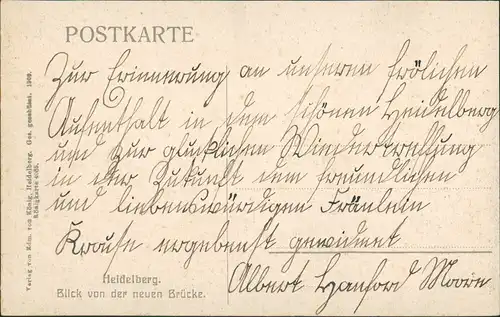 POSTKARTE
Zur Erinnerung an unseren frölichen
Aufenthalt in dem schönen Heidelberg
und zur glücklichen Wiedertreffung
in der Zukunft dem freundlichen
und liebenswürdigen Fräulein
Krause ergebenst gewidmet
Albert Hanford Moore
Heidelberg.
Blick von der neuen Brücke.
Verlag von Edm. von König, Heidelberg. Ges. geschützt. 1909.